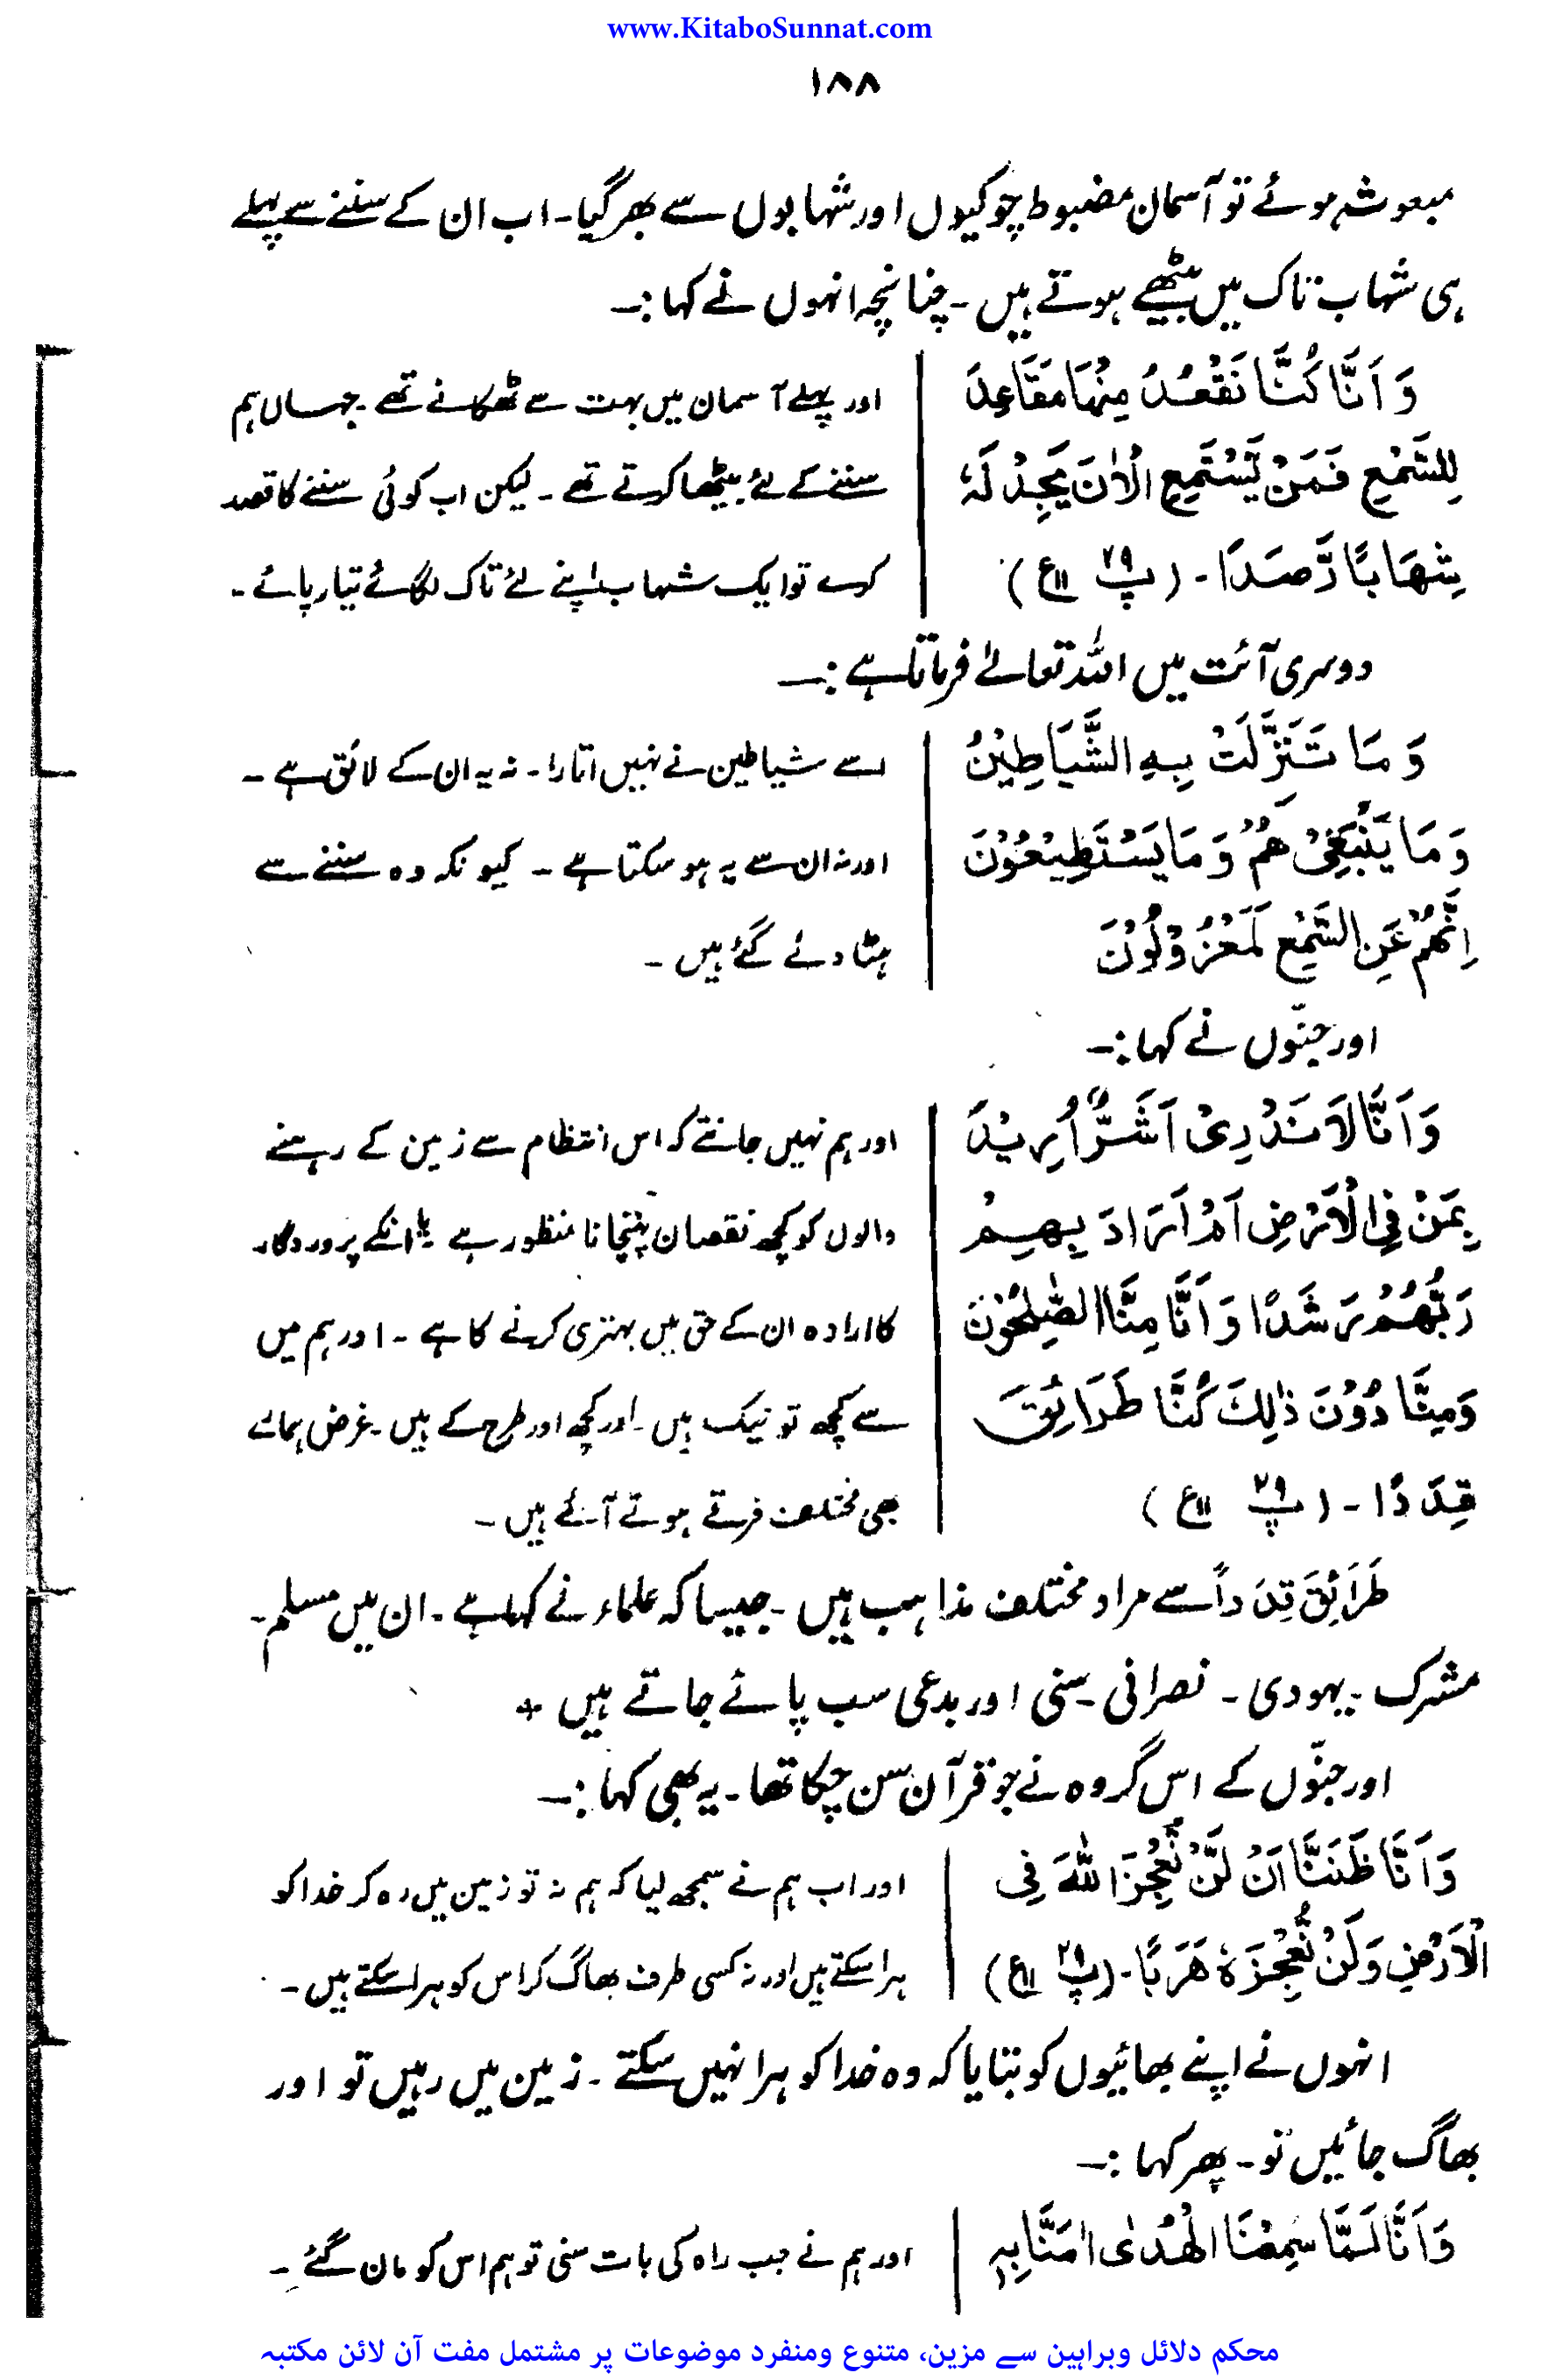 www.KitaboSunnat.com
۱۸۸
مبعوث ہوئے تو آسمان مضبوط چوکیوں اور شہابوں سے بھر گیا۔ اب ان کے سننے سے پہلے
ہی شہاب تاک میں بیٹھے ہوتے ہیں۔ چنانچہ انہوں نے کہا :۔
وَ اَنَّا كُنَّا نَقْعُدُ مِنْهَا مَقَاعِدَ
لِلسَّمْعِ فَمَنْ يَّسْتَمِعِ الْاٰنَ يَجِدْ لَهٗ
شِهَابًا رَّصَدًا۔ (پ ۲۹ ع ۱۱)
اور پہلے آسمان میں بہت سے ٹھکانے تھے۔ جہاں ہم
سننے کے لئے بیٹھا کرتے تھے۔ لیکن اب کوئی سننے کا قصد
کرے تو ایک شہاب اپنے لئے تاک لگائے تیار پائے۔
دوسری آئت میں اللہ تعالےٰ فرماتا ہے :۔
وَ مَا تَنَزَّلَتْ بِهِ الشَّيَاطِيْنُ
وَ مَا يَنْبَغِىْ لَهُمْ وَ مَا يَسْتَطِيْعُوْنَ
اِنَّهُمْ عَنِ السَّمْعِ لَمَعْزُوْلُوْنَ
اسے شیاطین نے نہیں اتارا۔ نہ یہ ان کے لائق ہے۔
اور نہ ان سے یہ ہو سکتا ہے۔ کیونکہ وہ سننے سے
ہٹا دئے گئے ہیں۔
اور جنّوں نے کہا :۔
وَ اَنَّا لَا نَدْرِىْ اَشَرٌّ اُرِيْدَ
بِمَنْ فِى الْاَرْضِ اَمْ اَرَادَ بِهِمْ
رَبُّهُمْ رَشَدًا وَ اَنَّا مِنَّا الصّٰلِحُوْنَ
وَ مِنَّا دُوْنَ ذٰلِكَ كُنَّا طَرَائِقَ
قِدَدًا۔ (پ ۲۹ ع ۱۱)
اور ہم نہیں جانتے کہ اس انتظام سے زمین کے رہنے
والوں کو کچھ نقصان پہنچانا منظور ہے یا انکے پروردگار
کا ارادہ ان کے حق میں بہتری کرنے کا ہے۔ اور ہم میں
سے کچھ تو نیک ہیں۔ اور کچھ اور طرح کے ہیں۔ غرض ہمارے
بھی مختلف فرقے ہوتے آئے ہیں۔
طَرَائِقَ قِدَداً سے مراد مختلف مذاہب ہیں۔ جیسا کہ علماء نے کہا ہے۔ ان میں مسلم۔
مشرک۔ یہودی۔ نصرانی۔ سنی اور بدعی سب پائے جاتے ہیں *
اور جنّوں کے اس گروہ نے جو قرآن سن چکا تھا۔ یہ بھی کہا :۔
وَ اَنَّا ظَنَنَّا اَنْ لَّنْ نُّعْجِزَ اللّٰهَ فِى
الْاَرْضِ وَ لَنْ نُّعْجِزَهٗ هَرَبًا۔ (پ ۲۹ ع ۱۱)
اور اب ہم نے سمجھ لیا کہ ہم نہ تو زمین میں رہ کر خدا کو
ہرا سکتے ہیں اور نہ کسی طرف بھاگ کر اس کو ہرا سکتے ہیں۔
انہوں نے اپنے بھائیوں کو بتایا کہ وہ خدا کو ہرا نہیں سکتے۔ زمین میں رہیں تو اور
بھاگ جائیں تو۔ پھر کہا :۔
وَ اَنَّا لَمَّا سَمِعْنَا الْهُدٰى اٰمَنَّا بِهٖ
اور ہم نے جب راہ کی بات سنی تو ہم اس کو مان گئے۔
محکم دلائل وبراہین سے مزین، متنوع ومنفرد موضوعات پر مشتمل مفت آن لائن مکتبہ